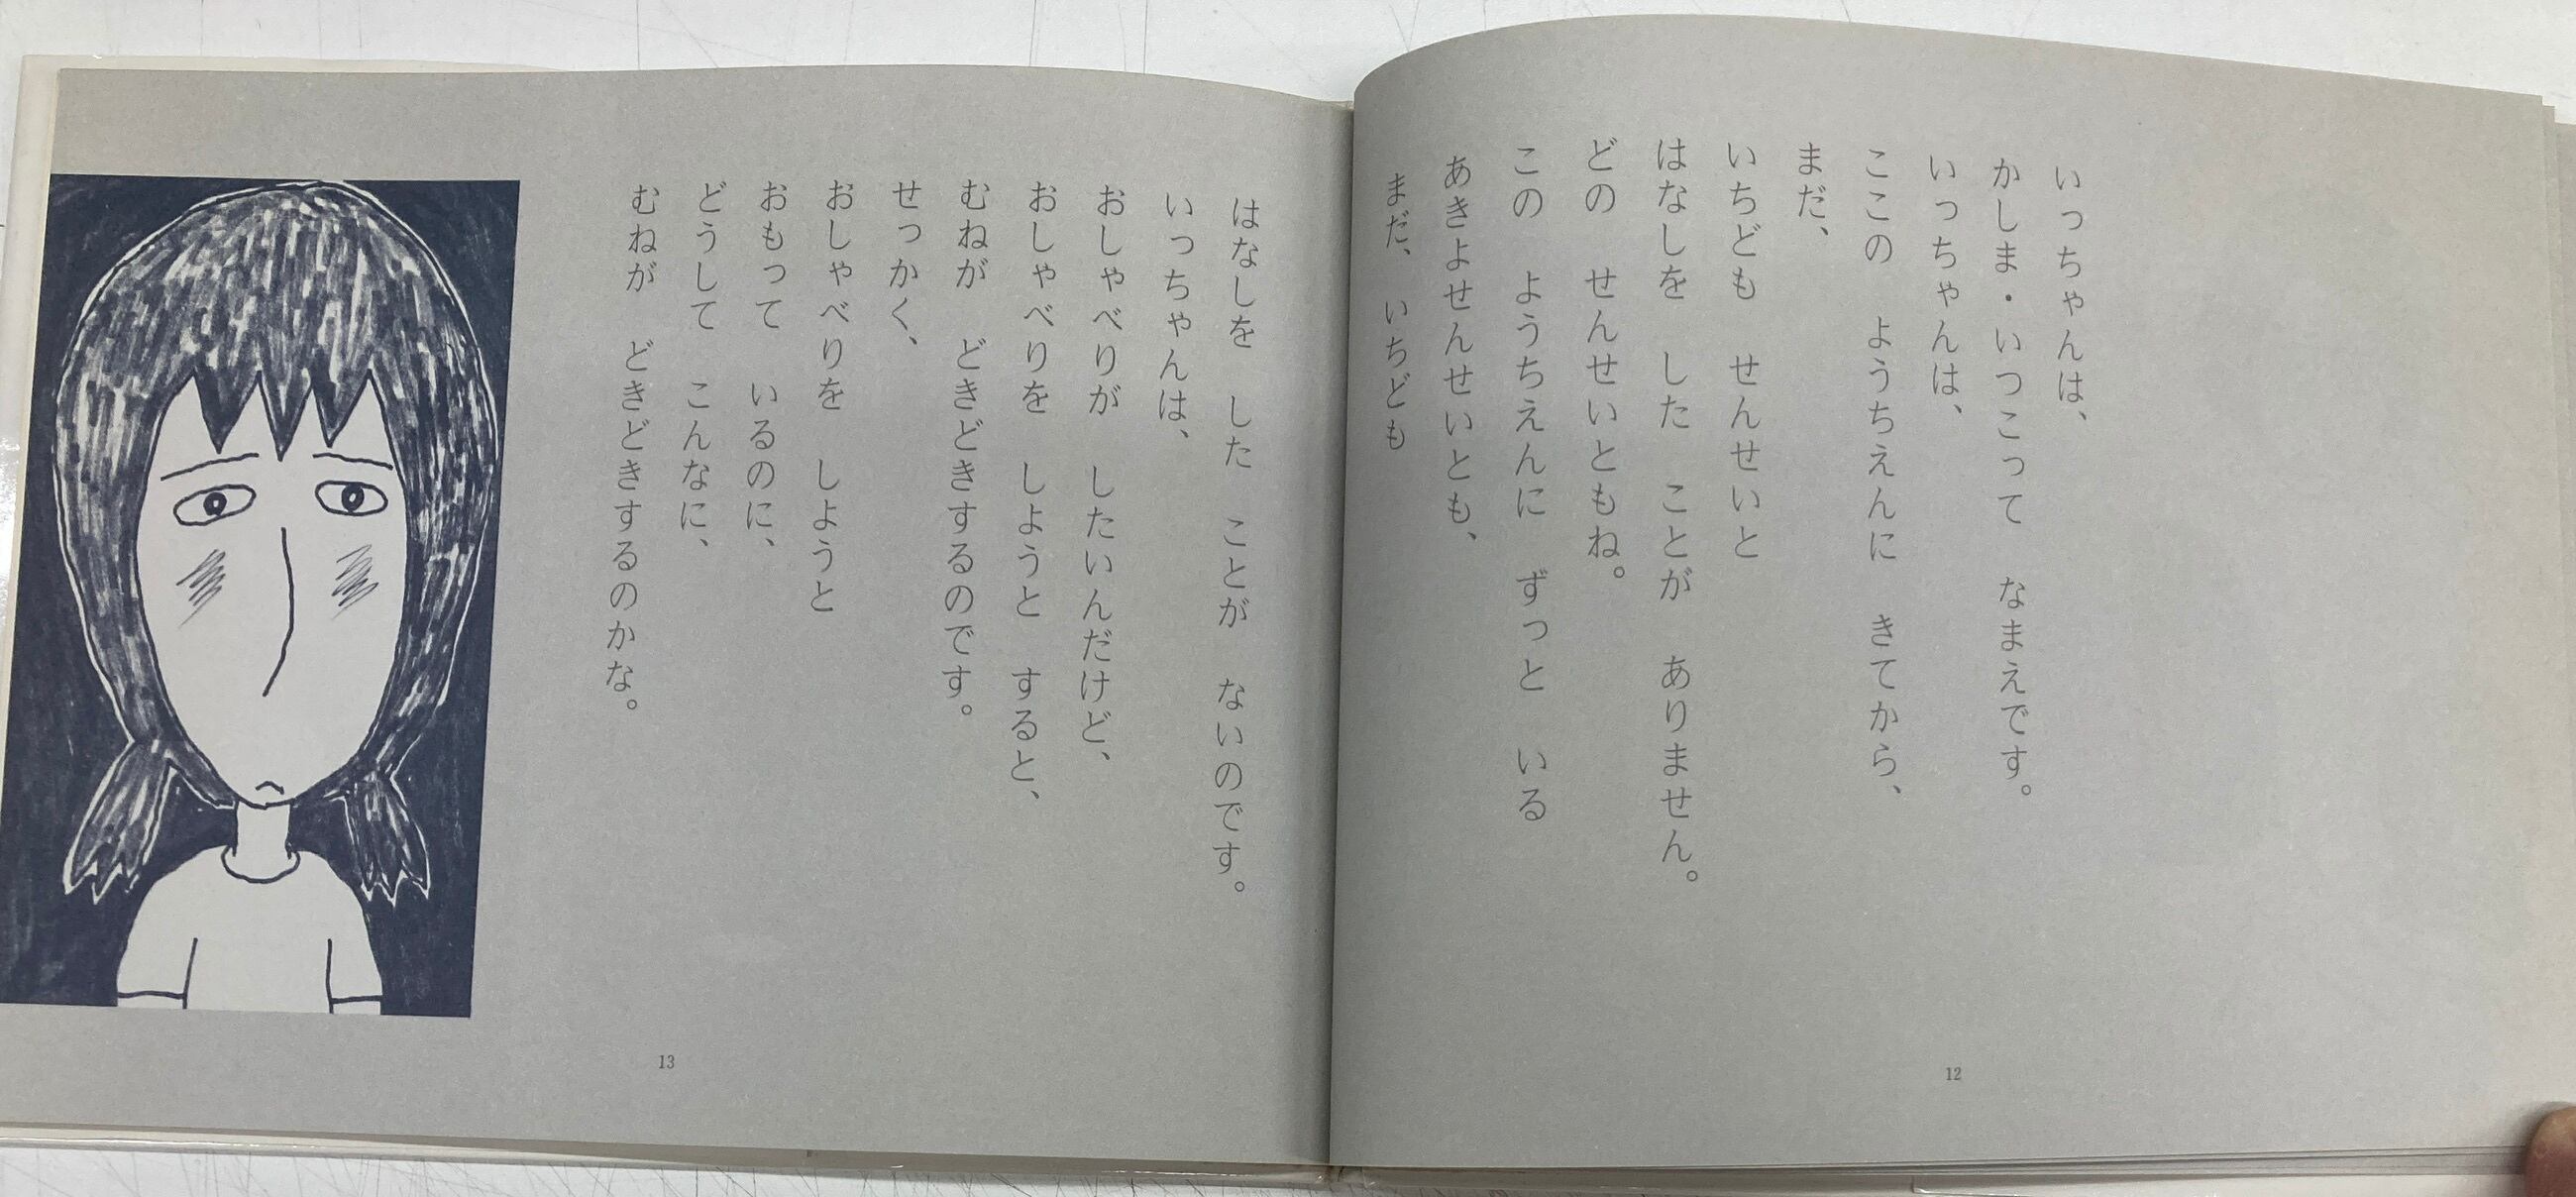 いっちゃんは、
かしま・いつこって　なまえです。
いっちゃんは、
ここの　ようちえんに　きてから、
まだ、
いちども　せんせいと
はなしを　した　ことが　ありません。
どの　せんせいともね。
この　ようちえんに　ずっと　いる
あきよせんせいとも、
まだ、いちども
12
はなしを　した　ことが　ないのです。
いっちゃんは、
おしゃべりが　したいんだけど、
おしゃべりを　しようと　すると、
むねが　どきどきするのです。
せっかく、
おしゃべりを　しようと
おもって　いるのに、
どうして　こんなに、
むねが　どきどきするのかな。
13